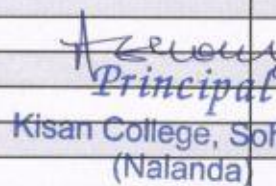 Principal
Kisan College, Soh
(Nalanda)